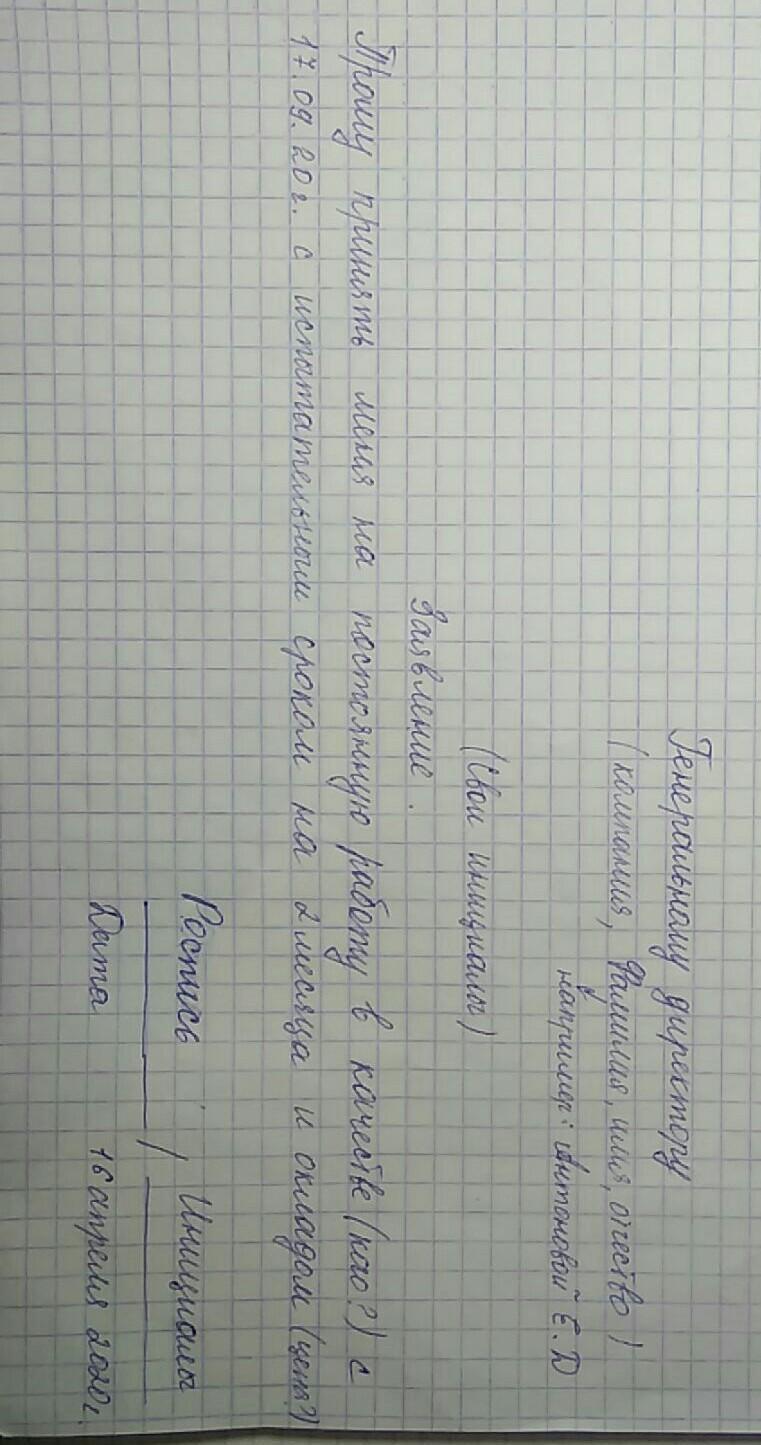 Генеральному директору
(компания, Фамилия, имя, отчество)
например: Антоновой Е.Д
(Свои инициалы)
Заявление.
Прошу принять меня на постоянную работу в качестве (као?) с
17.09.20г. с испытательным сроком на 2 месяца и окладом (цена?)
Роспись Инициалы
/
Дата 16 апреля 2020г.